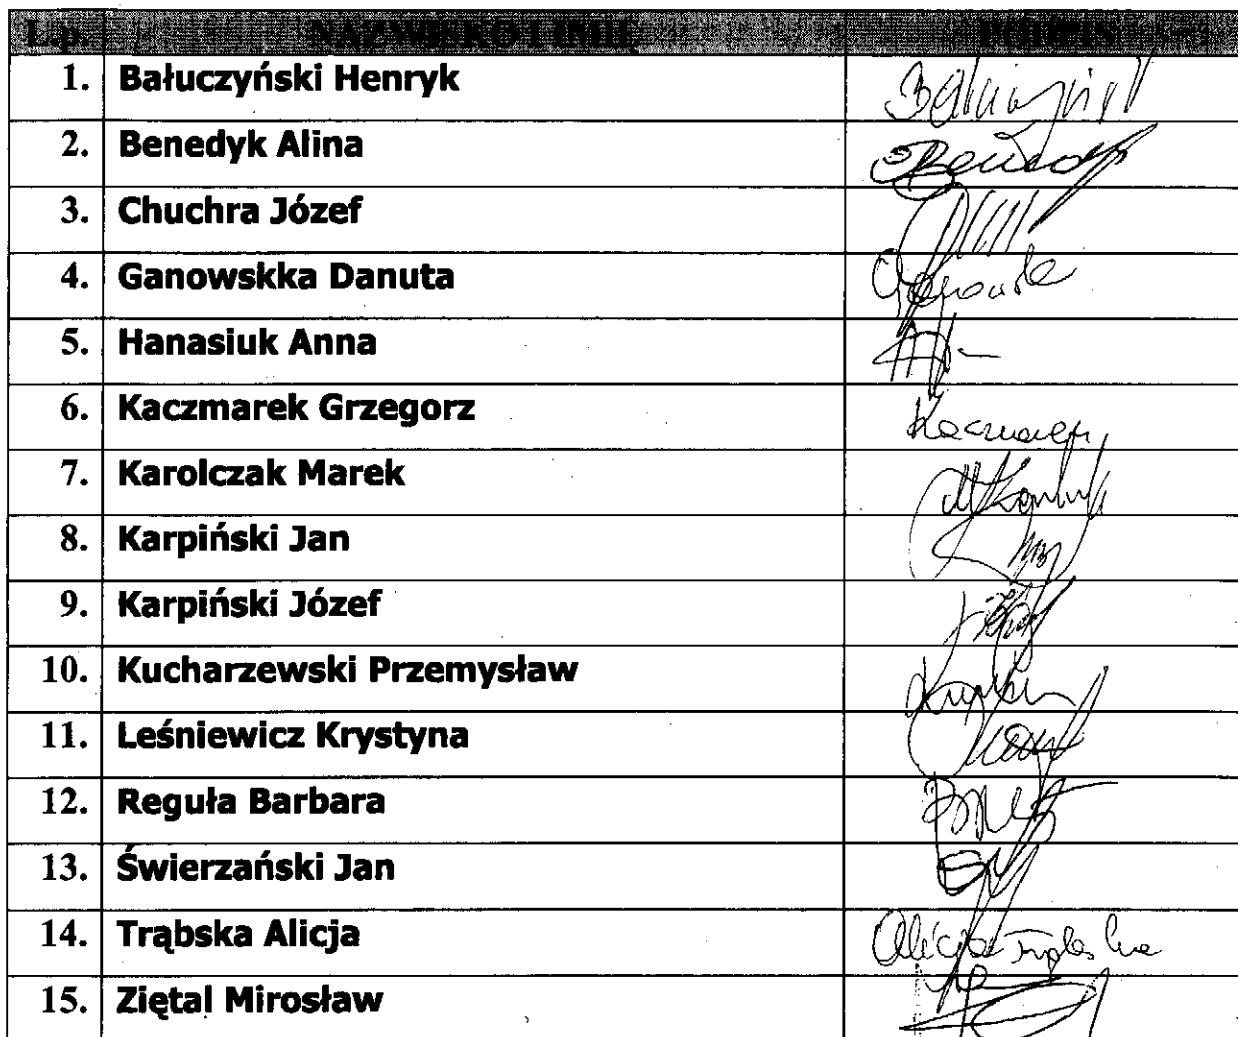 L.p. NAZWISKO I IMIĘ PODPIS
1. Bałuczyński Henryk
2. Benedyk Alina
3. Chuchra Józef
4. Ganowskka Danuta
5. Hanasiuk Anna
6. Kaczmarek Grzegorz Kaczmarek
7. Karolczak Marek
8. Karpiński Jan
9. Karpiński Józef
10. Kucharzewski Przemysław
11. Leśniewicz Krystyna
12. Reguła Barbara
13. Świerzański Jan
14. Trąbska Alicja Alicja Trąbska
15. Ziętal Mirosław